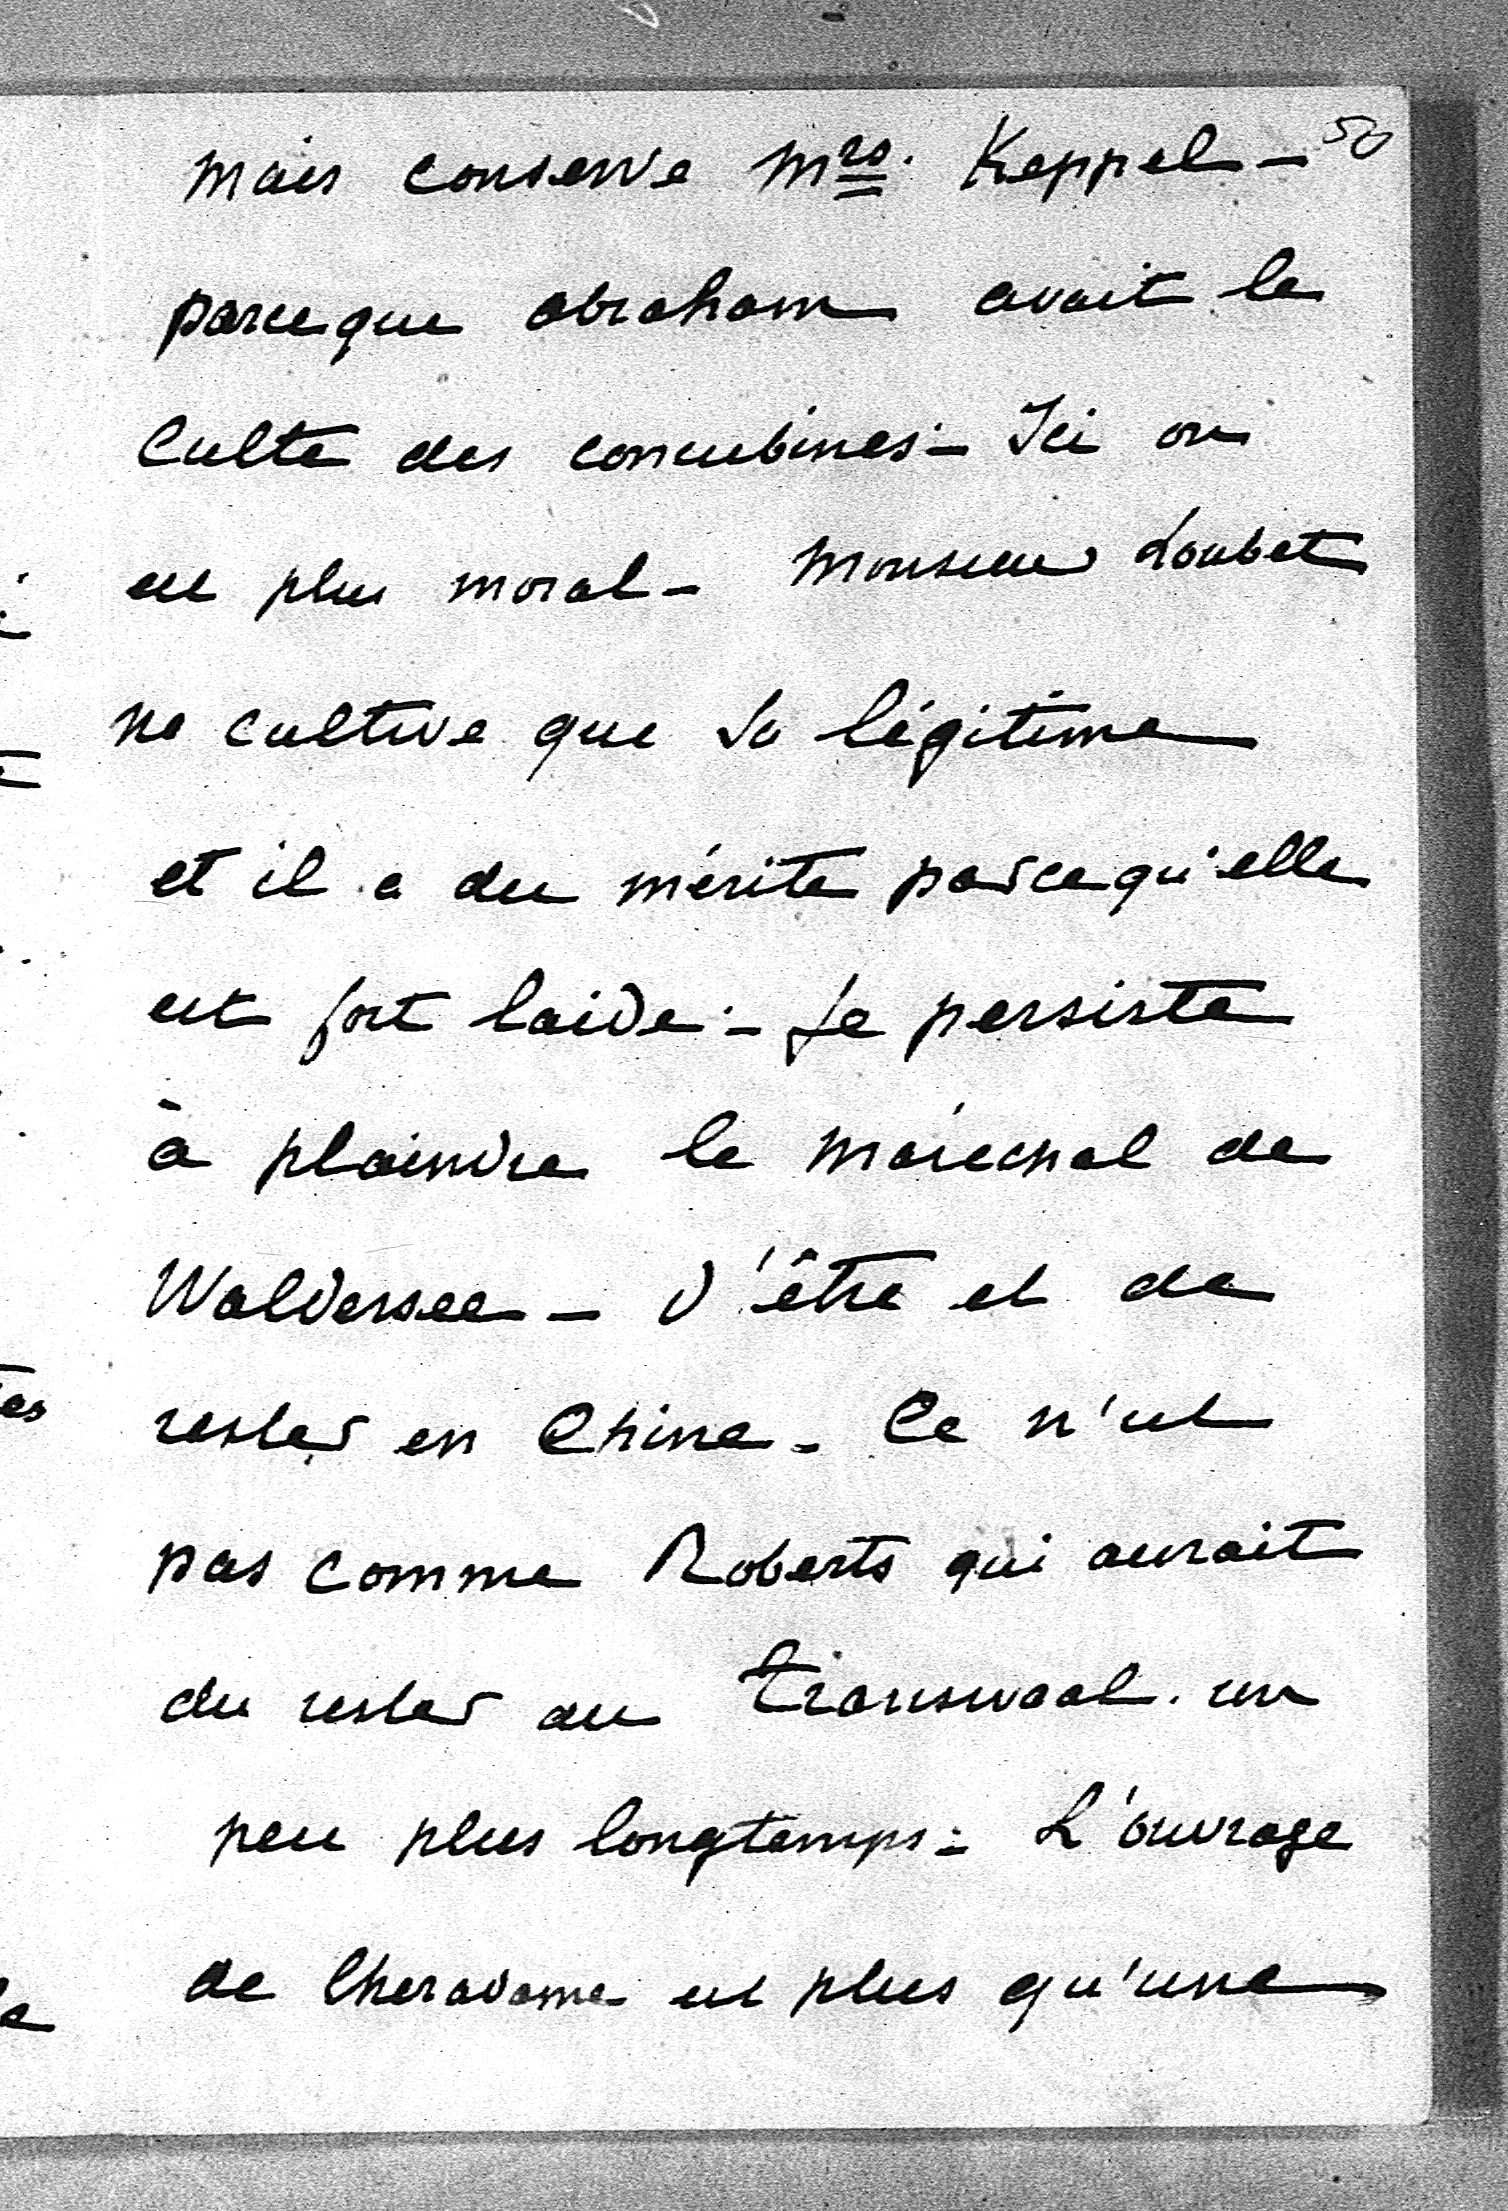 50
mais conserve Mrs. Keppel –
parceque abraham avait le
Culte des concubines – Ici on
est plus moral – Monsieur Loubet
ne cultive que sa légitime
et il a du mérite parcequ'elle
est fort laide. – Je persiste
à plaindre le maréchal de
Waldersee – d'être et de
rester en Chine. Ce n'est
pas comme Roberts qui aurait
du rester au Transwaal un
peu plus longtemps. – L'ouvrage
de Cheradame est plus qu'une